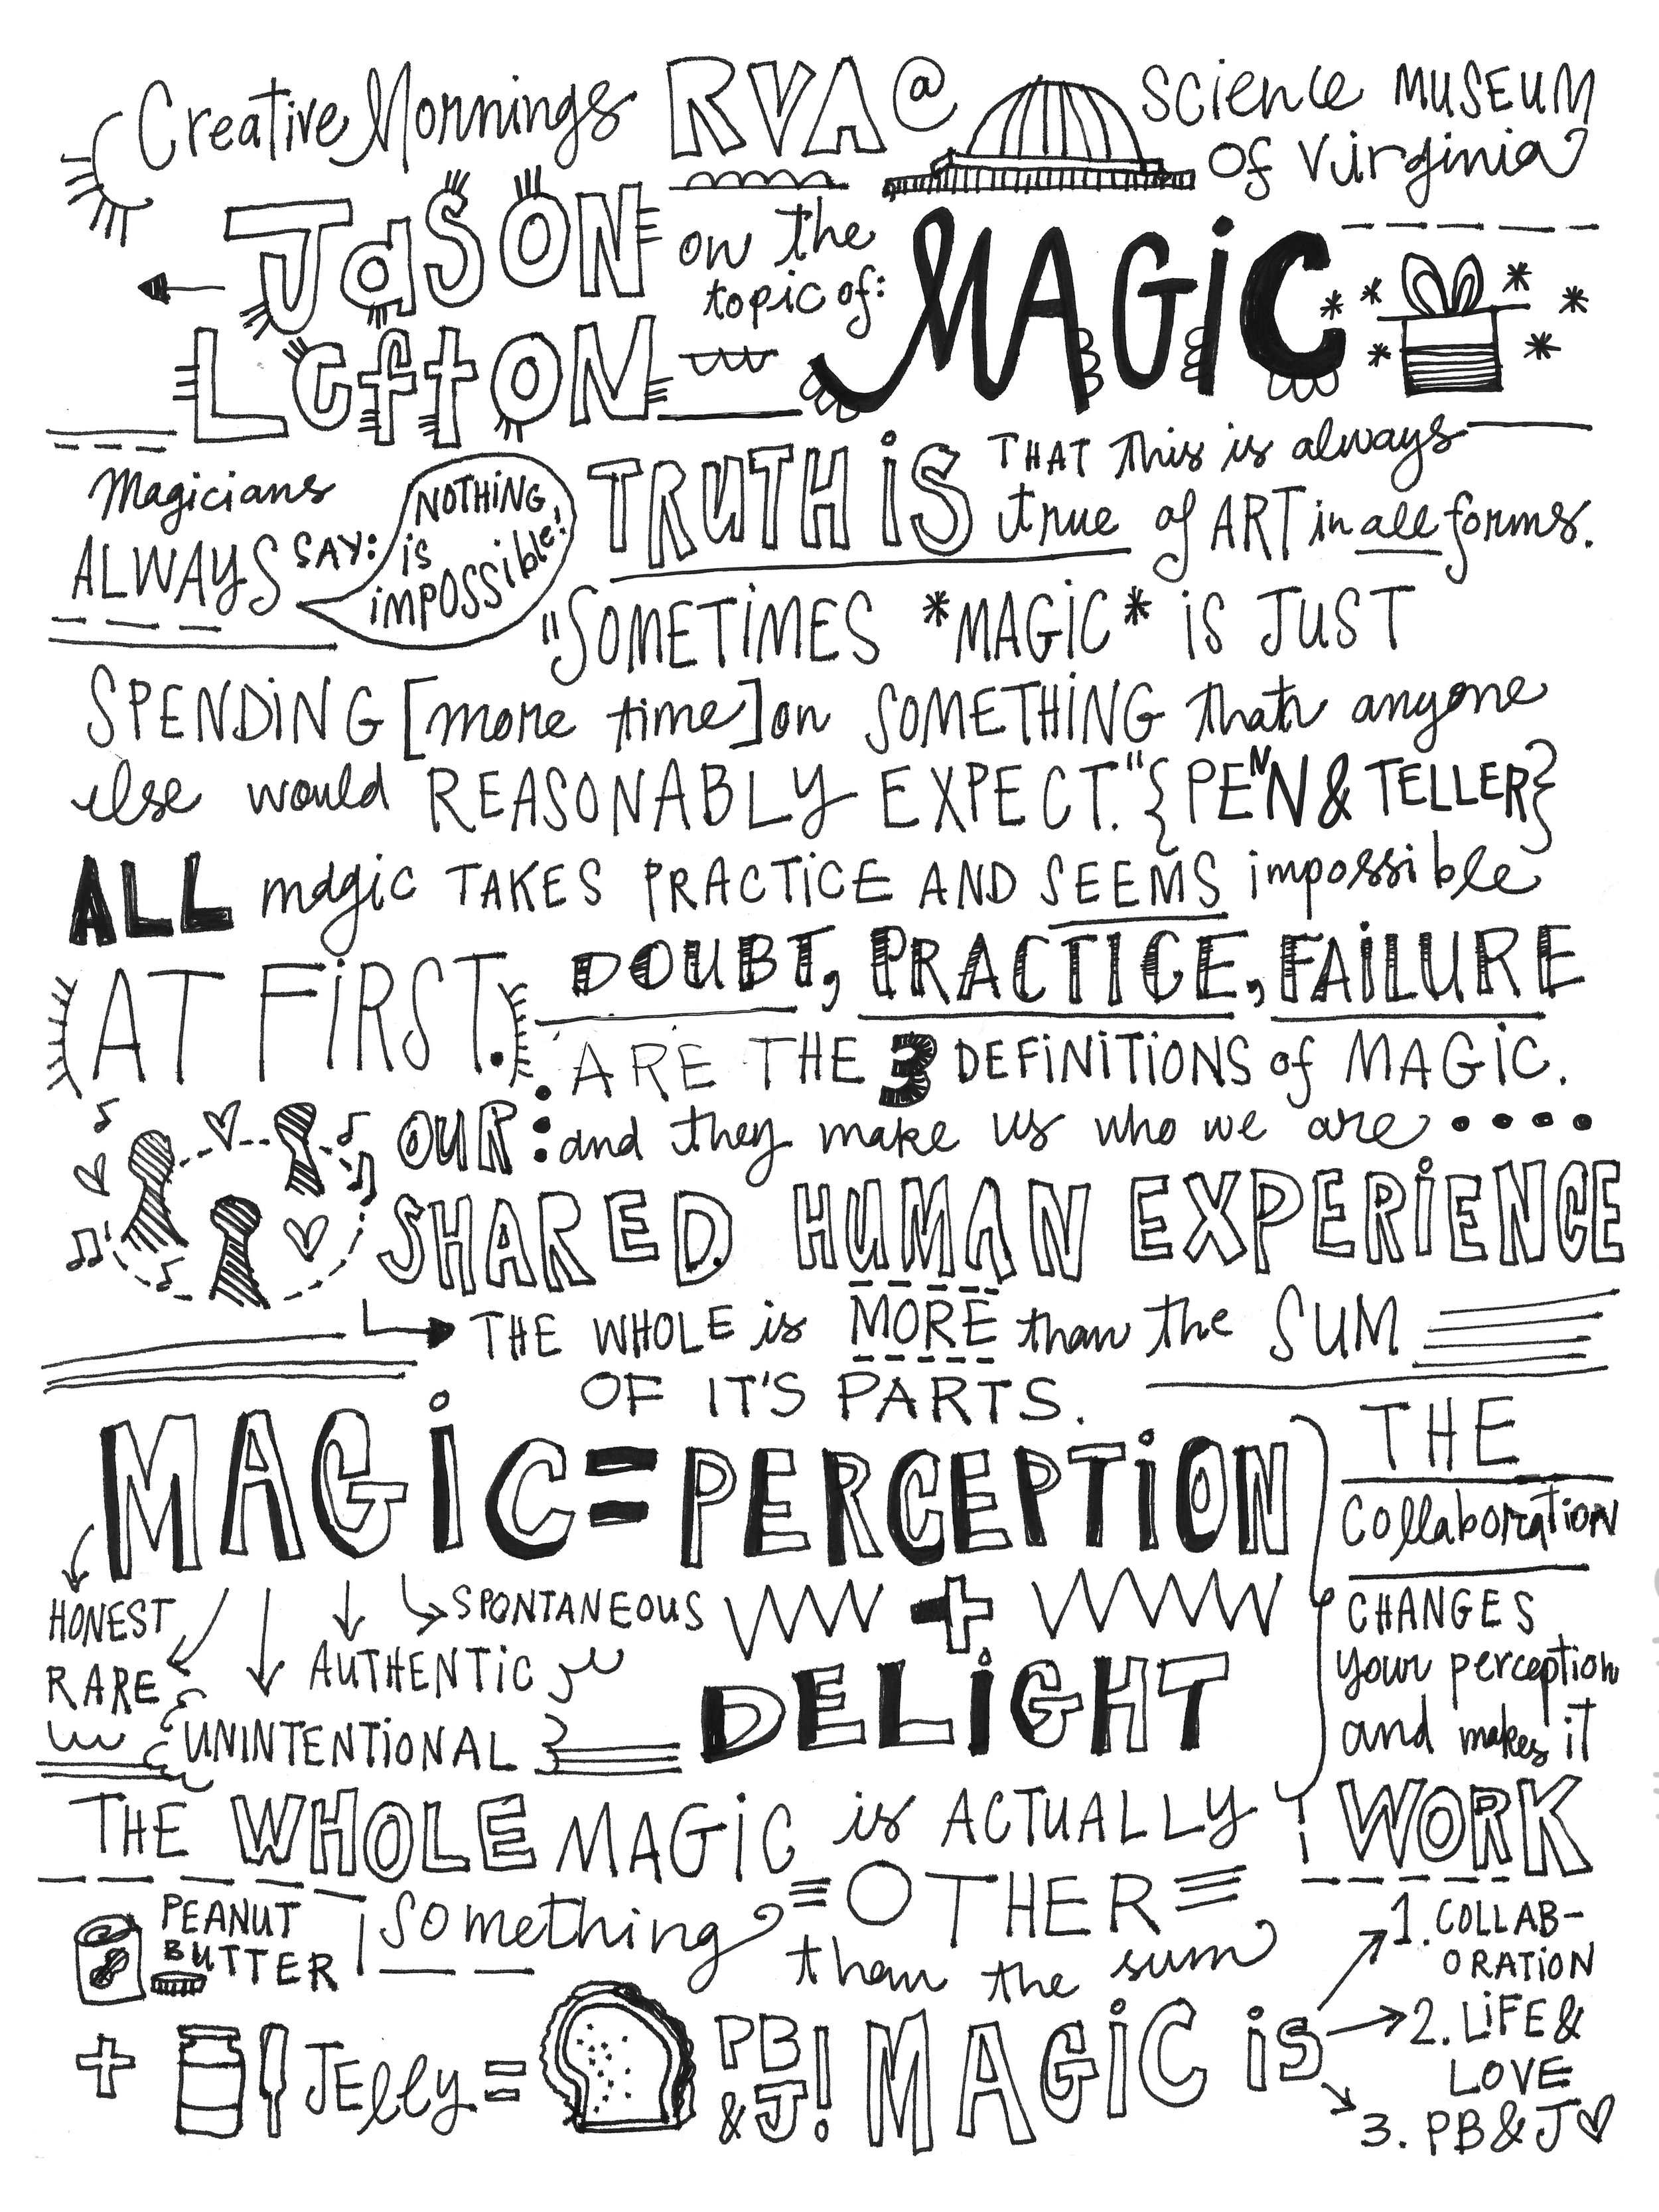 Creative Mornings RVA @ Science MUSEUM of Virginia
JASON LEFTON
on the topic of: MAGIC
Magicians ALWAYS SAY:
NOTHING is iMPOSSible!
TRUTH iS THAT this is always
true of ART in all forms.
"SOMETiMES *MAGiC* iS JUST
SPENDiNG [more time] on SOMETHiNG that anyone
else would REASONABLY EXPECT." {PENN & TELLER}
ALL magic TAKES PRACTiCE AND SEEMS impossible
AT FiRST.
DOUBT, PRACTICE, FAiLURE
ARE THE 3 DEFiNiTiONS of MAGiC.
and they make us who we are....
OUR
SHARED HUMAN EXPERiENCE
THE WHOLE is MORE than the SUM
OF IT'S PARTS.
MAGiC = PERCEPTiON
+
DELiGHT
HONEST
RARE
UNiNTENTiONAL
AUTHENTiC
SPONTANEOUS
THE
Collaboration
CHANGES
your perception
and makes it
WORK
THE WHOLE MAGiC is ACTUALLY
something OTHER
than the sum
PEANUT
BUTTER
+ JElly = PB
&J!
MAGiC is
1. COLLAB-
ORATiON
2. LiFE &
LOVE
3. PB&J